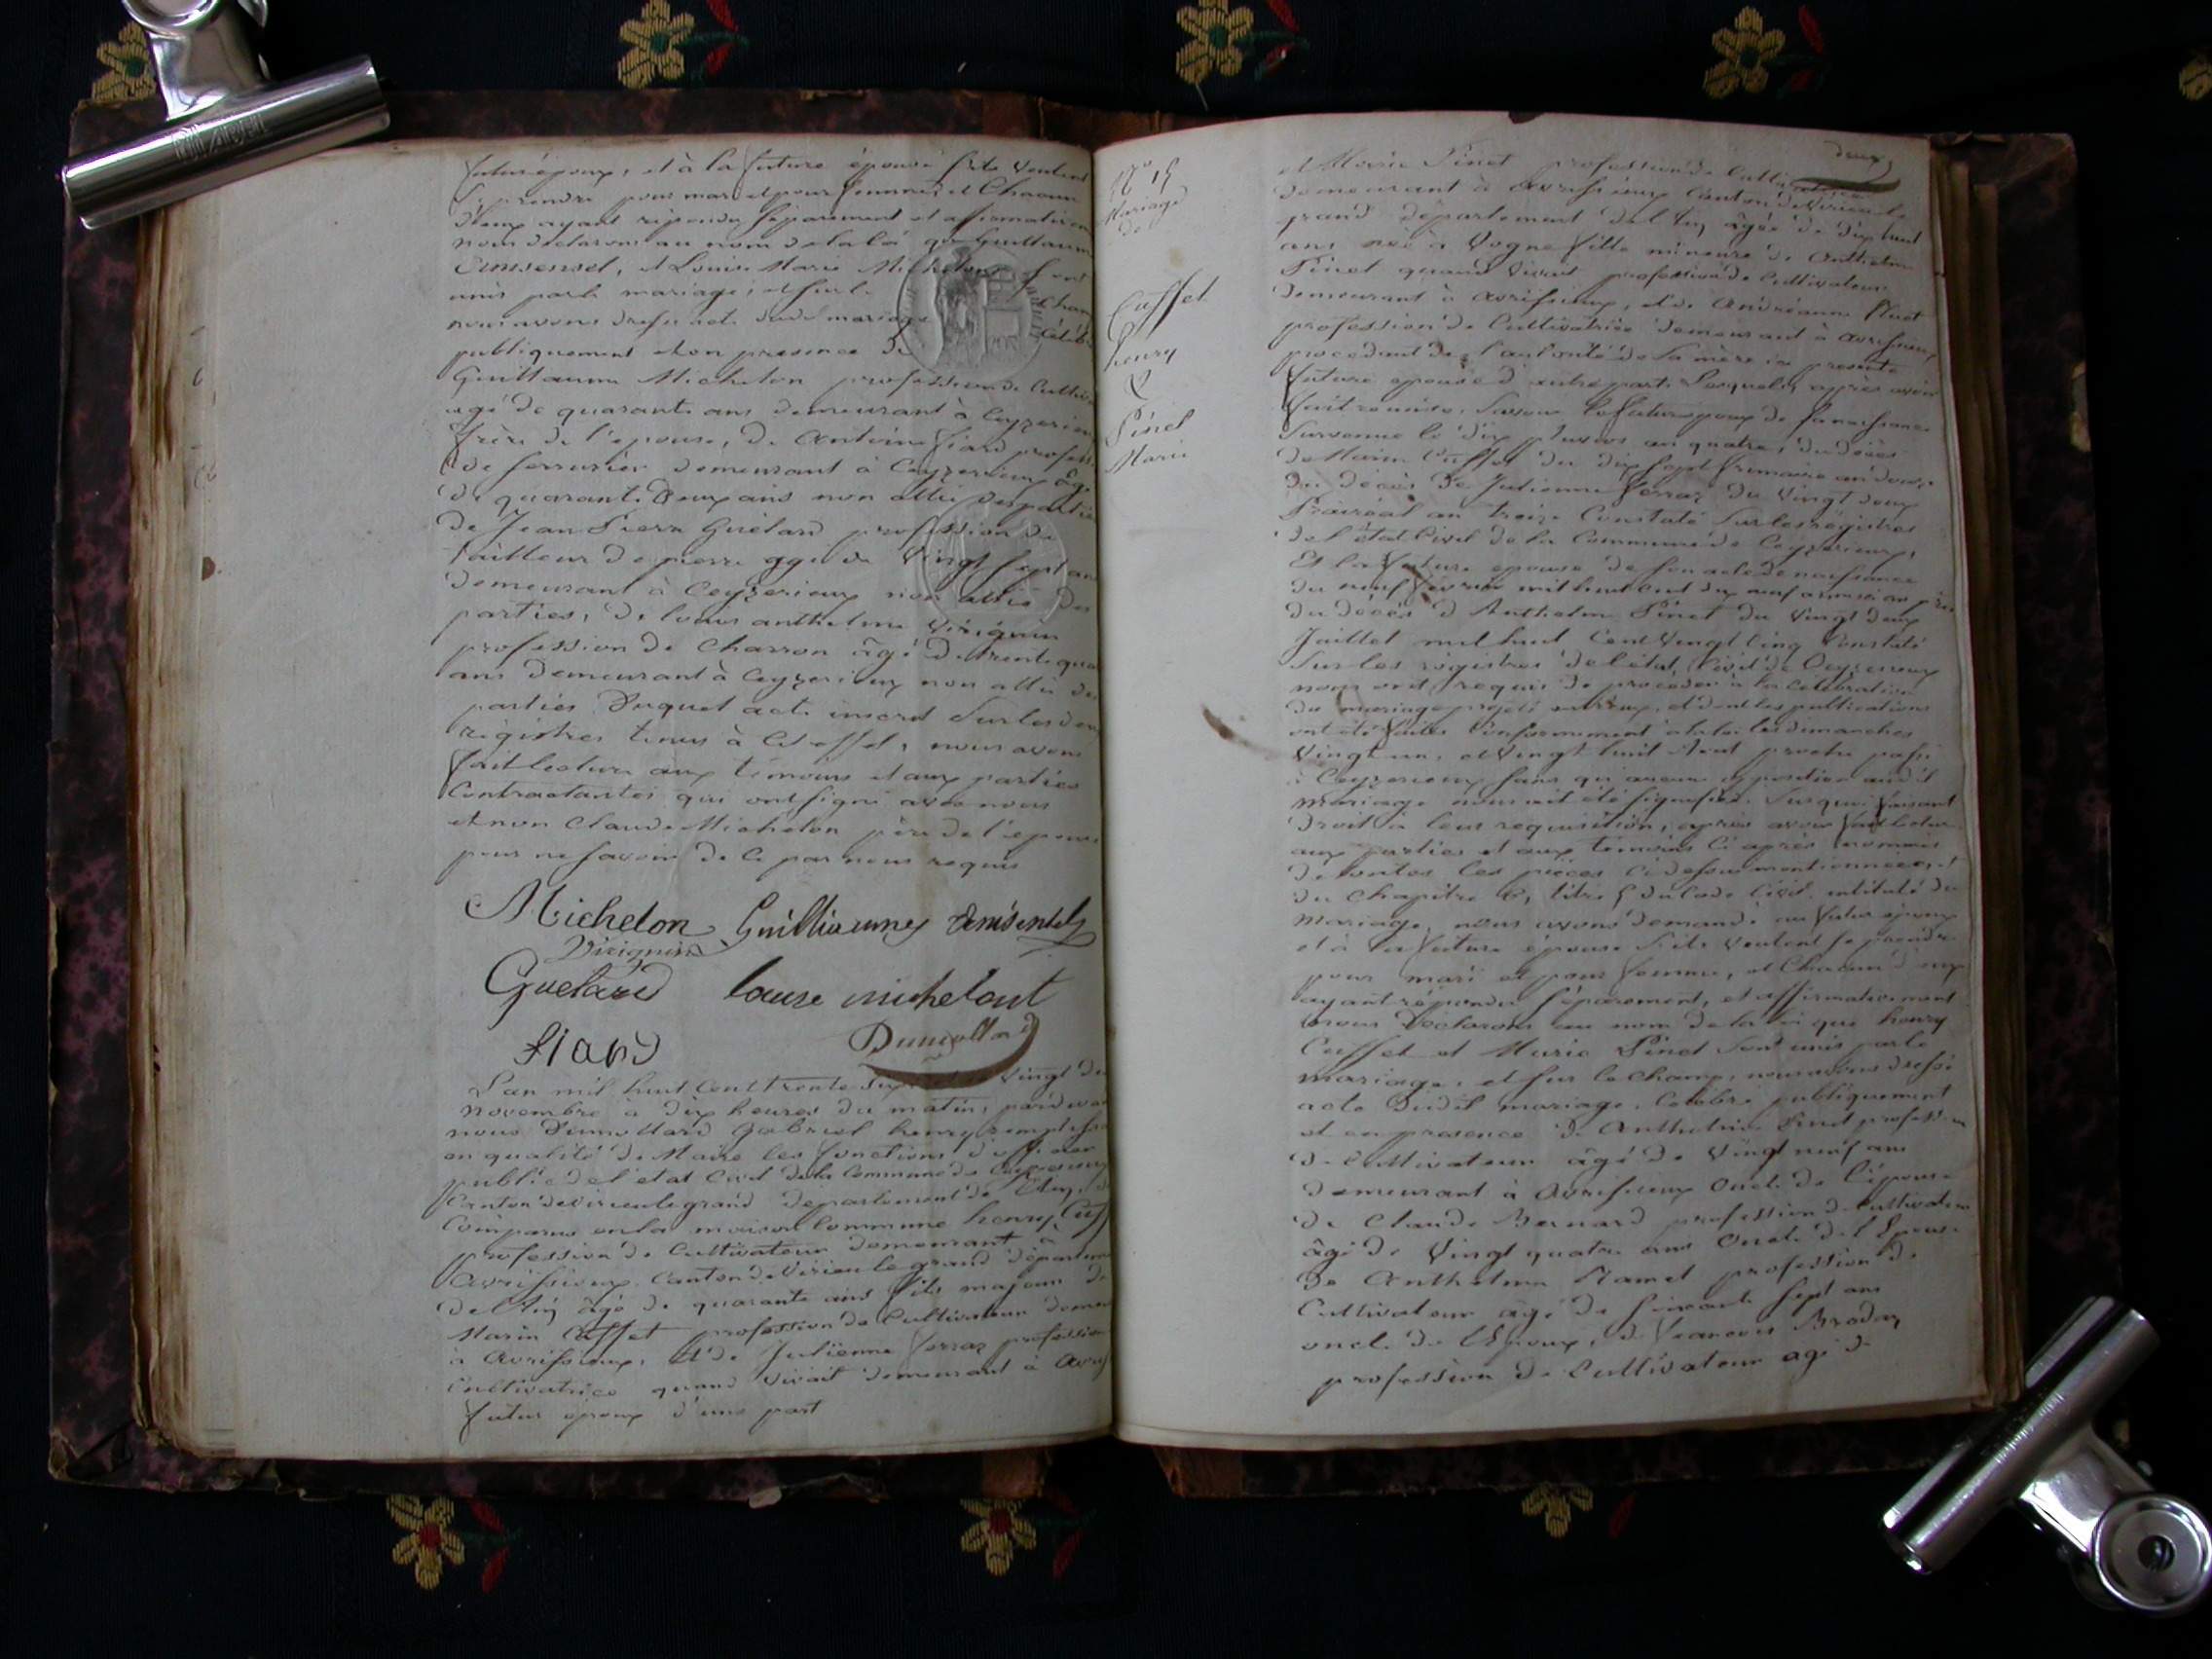 futur époux, et à la future épouse s'ils veulent
se prendre pour mari et pour femme, et Chacun
d'eux ayant répondu séparément et affirmativem
nous déclarons au nom de la loi que Guillaume
et Louise Marie Michelon sont
unis par le mariage, et sur le Cham
nous avons dressé acte dudit mariage Céléb
publiquement et en presence de
Guillaume Michelon profession de Cultiv
agé de quarante ans demeurant à Ceyzerieu
frère de l'épouse, de Antoine fiard profess
de serrurier demeurant à Ceyzerieux âgé
de quarante deux ans non allié des parties
de Jean Pierre Guélard profession de
tailleur de pierre agé de vingt sept an
demeurant à Ceyzerieux non allié des
parties, de louis anthelme Virignin
profession de Charron âgé de trente qua
ans demeurant à Ceyzerieux non allié des
parties Duquel acte inscrit sur les deux
régistres tenus à Cet effet, nous avons
fait lecture aux témoins et aux parties
Contractantes qui ont signé avec nous
et non Claude Michelon père de l'épouse
pour ne savoir de ce par nous requis
Michelon Guilliaume
Virignin
Guelard louise michelont
fiard Dumollard
L'an mil huit cent trente six vingt de
novembre à dix heures du matin, pardevan
nous Dumollard Gabriel henry remplissa
en qualité de Maire les fonctions d'officier
public de l'état Civil de la Commune de Ceyzerieux
Canton de virieu le grand departement de l'Ain,
Comparus en la maison Commune henry Cuff
profession de Cultivateur demeurant à
avrissieux Canton de Virieu le grand départem
de l'Ain âgé de quarante ans fils majeur de
Marin Cuffet profession de Cultivateur demeu
à avrissieux, et de Julienne ferraz profession
Cultivatrice quand vivait demeurant à avriss
futur époux d'une part
N° 15
Mariage
de
Cuffet
henry
&
Pinet
Marie
deux
et Marie Pinet profession de Cultivatrice
demeurant à avrissieux Canton de Virieu le
grand département de l'Ain âgée de dix huit
ans née à Vogne fille mineure de Anthelme
Pinet quand vivait profession de Cultivateur
demeurant à avrissieux, et de Andréanne
profession de Cultivatrice demeurant à avrissieux
procédant de l'autorité de sa mère ici presente
future epouse d'autre part. Lesquels, après avoir
fait remise, savoir le futur époux de sa naissance
survenue le dix pluviose an quatre, du décès
de Marin Cuffet du dix sept frimaire an douze
du décès de Julienne ferraz du vingt deux
Prairéal an treize Constaté sur les régistres
de l'état Civil de la Commune de Ceyzerieux,
Et la future epouse de son acte de naissance
du neuf février mil huit cent dix neuf
du décès d'Anthelme Pinet du vingt deux
Juillet mil huit Cent vingt Cinq Constaté
sur les régistres de l'état Civil de Ceyzerieux
nous ont requis de procéder à la célébration
du mariage projeté entr'eux, et dont les publications
ont été faites Conformément à la loi les dimanches
vingt un, et vingt huit Aout proche passé
à Ceyzerieux sans qu'aucune opposition audit
mariage nous ait été signifiée. Sur quoi faisant
droit à leur requisition, après avoir fait lecture
aux parties et aux témoins Ci après nommés
de toutes les pièces Ci dessus mentionnées, et
du Chapitre 6, titre 5 du Code Civil intitulé du
mariage, nous avons demandé au futur époux
et à la future épouse s'ils veulent se prendre
pour mari et pour femme, et Chacun d'eux
ayant répondu séparement, et affirmativement
nous déclarons au nom de la loi que henry
Cuffet et Marie Pinet sont unis par le
mariage, et sur le champ, nous avons dressé
acte dudit mariage, Célébré publiquement
et en presence de Anthelme Pinet profession
de Cultivateur âgé de vingt neuf ans
demeurant à avrissieux oncle de l'épouse
de Claude Bernard profession de Cultivateur
âgé de vingt quatre ans oncle de l'Epouse
de Anthelme Ramel profession de
Cultivateur agé de soixante sept ans
oncle de l'Epoux, de francois Brodaz
profession de Cultivateur agé de